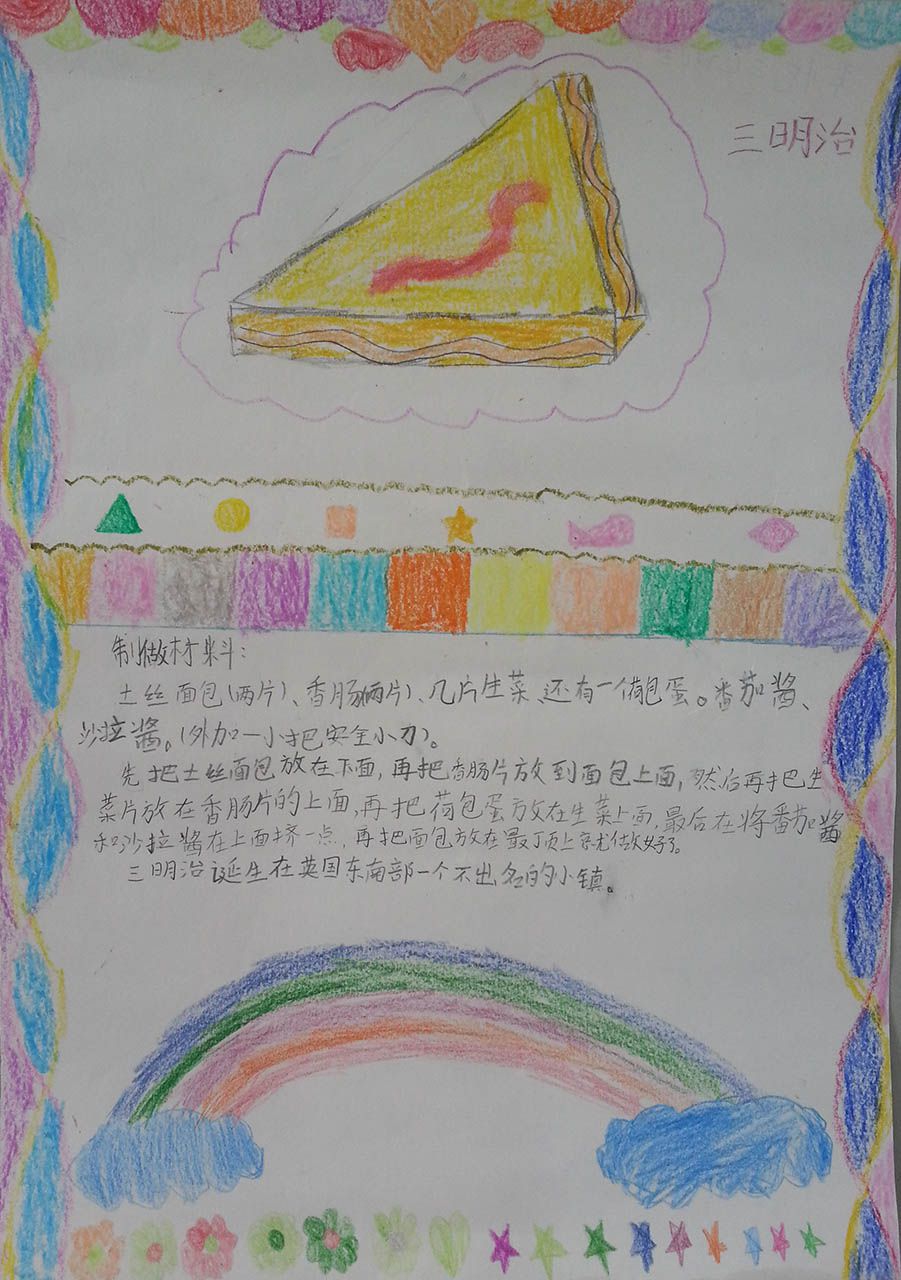 三明治
制做材料:
土丝面包(两片)、香肠(两片)、几片生菜、还有一个荷包蛋。番茄酱、
沙拉酱。(外加一小把安全小刀)。
先把土丝面包放在下面,再把香肠片放到面包上面,然后再把生
菜片放在香肠片的上面,再把荷包蛋放在生菜上面,最后在将番茄酱
和沙拉酱在上面挤一点,再把面包放在最丁页上就做好了。
三明治诞生在英国东南部一个不出名的小镇。